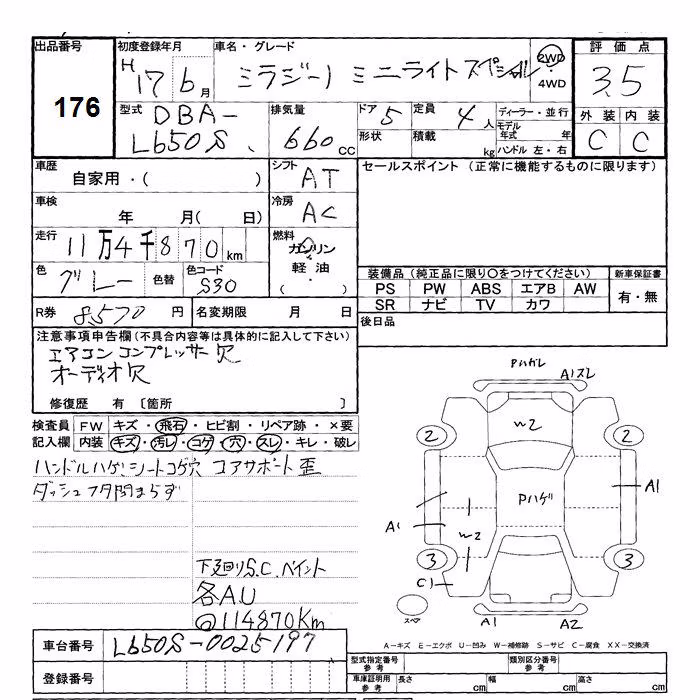 出品番号 初度登録年月 車名・グレード 評価点
176 H17 6月 ミラジーノ ミニライトスペシャル 2WD 3.5
・4WD
型式 DBA- 排気量 ドア 5 定員 4人 ディーラー・並行 外装 内装
L650S 660cc 形状 積載 kg モデル年式 年 C C
ハンドル 左・右
車歴 シフト セールスポイント (正常に機能するものに限ります)
自家用・( ) AT
車検 冷房
年 月( 日) AC
走行 11万4千870km 燃料
ガソリン
色 グレー 色替 色コード S30 軽油・ 装備品 (純正品に限り○をつけてください) 新車保証書
( ) PS PW ABS エアB AW 有・無
R券 8,570円 名変期限 月 日 SR ナビ TV カワ
後日品
注意事項申告欄(不具合内容等は具体的に記入して下さい)
エアコンコンプレッサー欠
オーディオ欠
修復歴 有 〔箇所 〕
検査員 FW キズ・飛石・ヒビ割・リペア跡・×要
記入欄 内装 キズ・汚レ・コゲ・穴・スレ・キレ・破レ
ハンドルハゲ シートコゲ穴 コアサポート歪
ダッシュフタ閉まらず
下廻りS.C.ペイント
各A.U
@114870Km
Pハゲレ A1スレ
W2
2 2
Pハゲ A1
A1
W2
3 3
C1
スペア A1 A2
A-キズ E-エクボ U-凹み W-補修跡 S-サビ C-腐食 XX-交換済
車台番号 L650S-0025197 型式指定番号 参考 類別区分番号 参考
登録番号 車庫証明用 参考 長さ cm 幅 cm 高さ cm